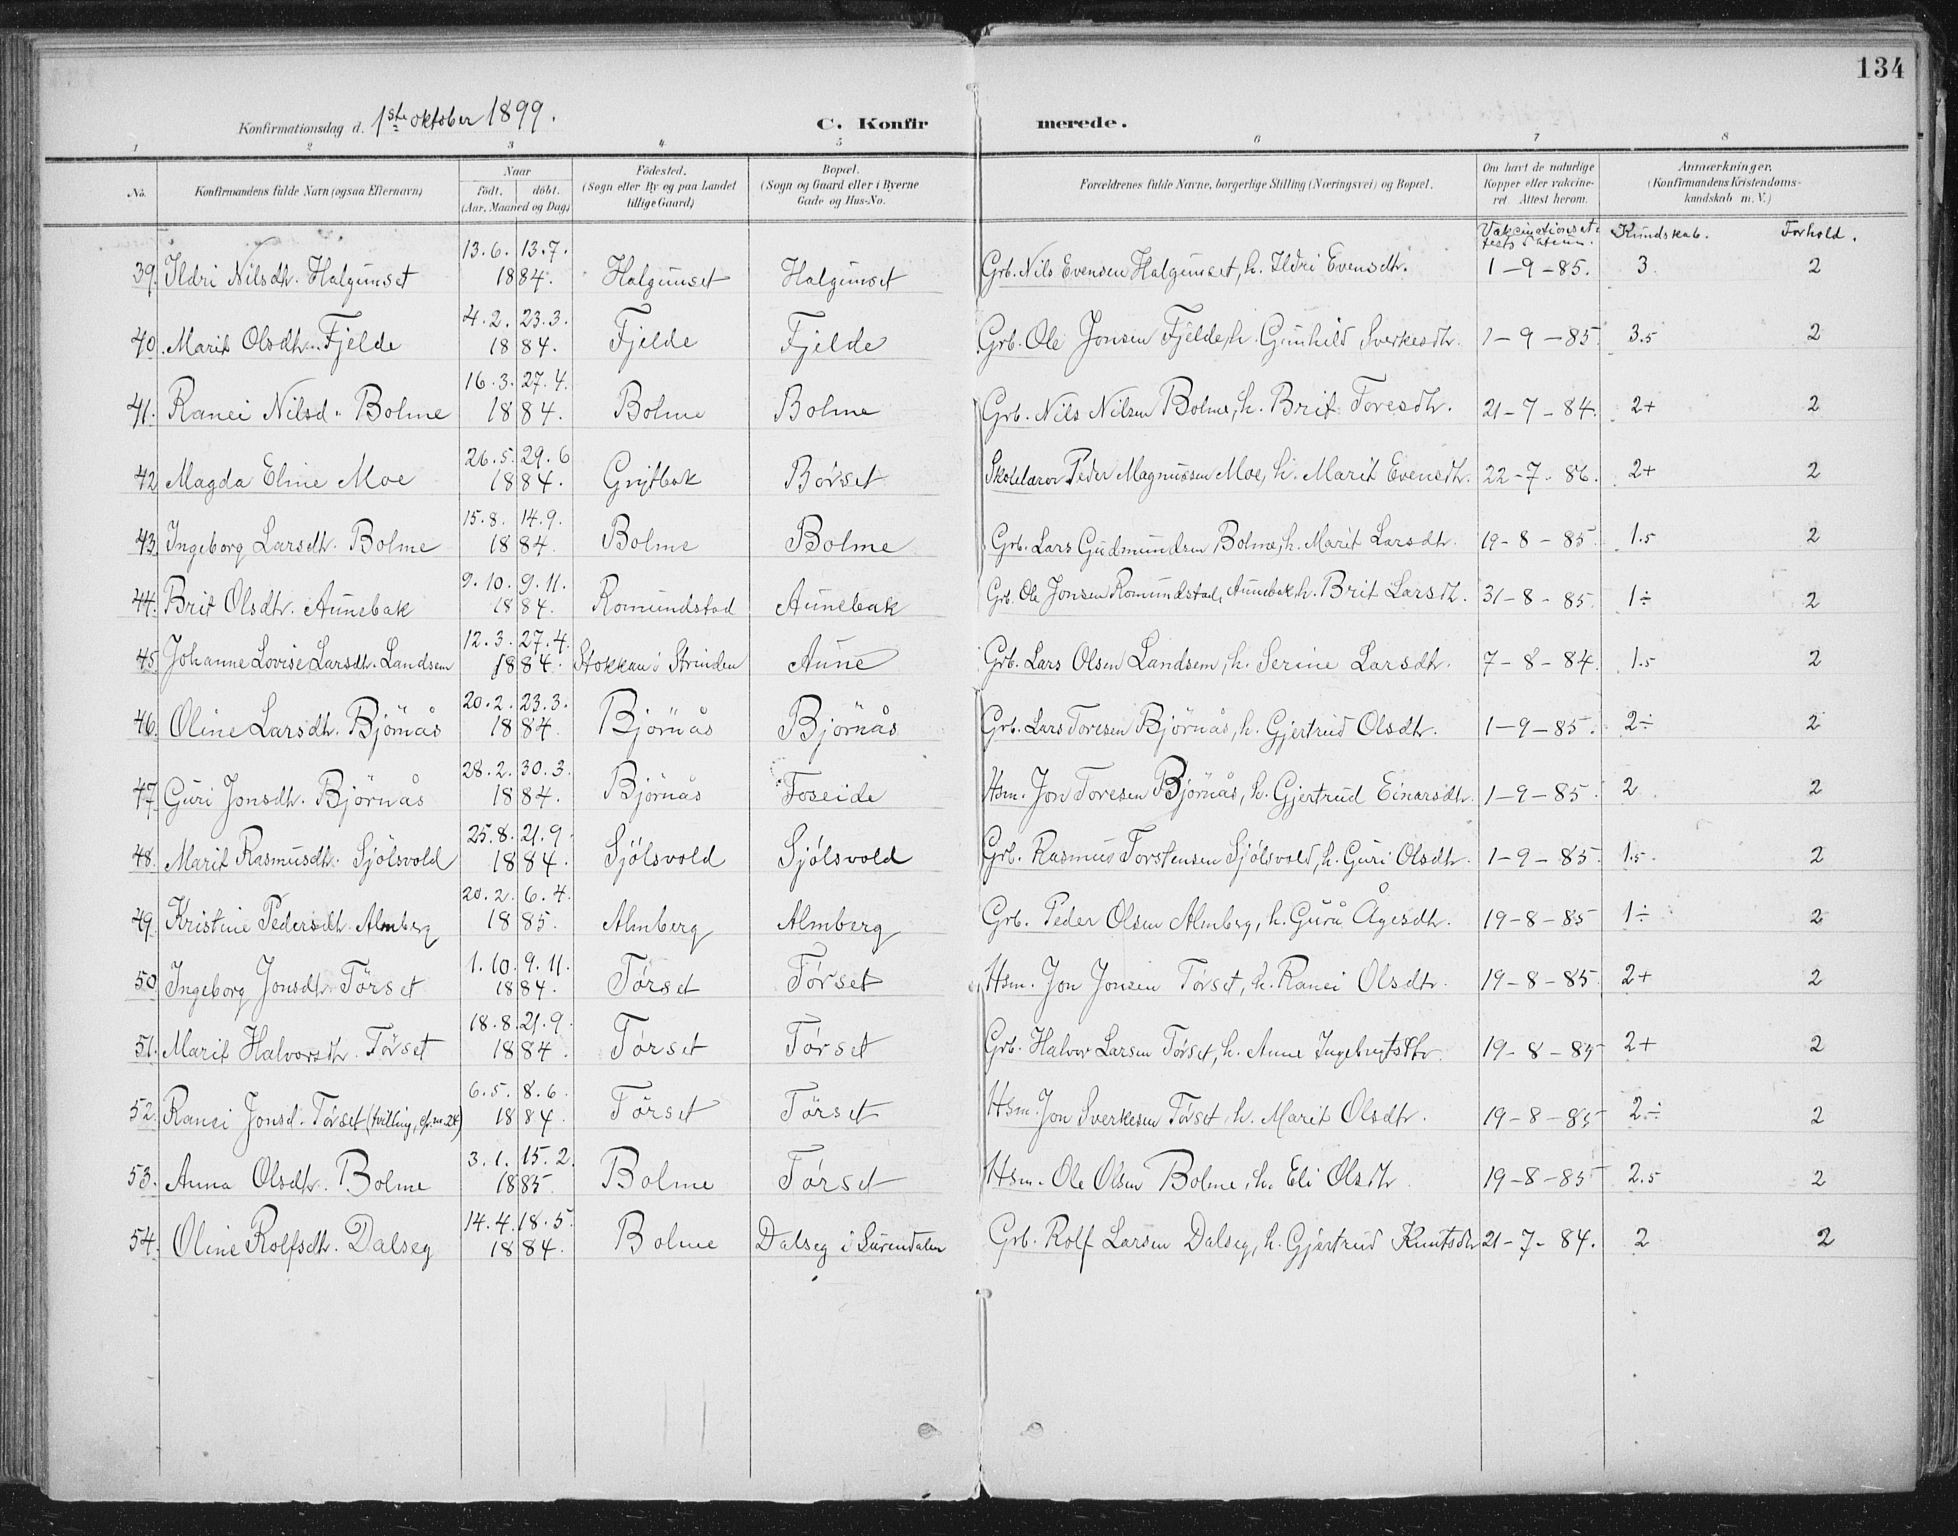 134
Konfirmationsdag d. 1ste oktober 1899. C. Konfirmerede.
1 2 3 4 5 6 7 8
No. Konfirmandens fulde Navn (ogsaa Efternavn) Naar födt. döbt. (Aar, Maaned og Dag) Födested. (Sogn eller By og paa Landet tillige Gaard) Bopæl. (Sogn og Gaard eller i Byerne Gade og Hus-No. Forældrenes fulde Navne, borgerlige Stilling (Næringsvei) og Bopæl. Om havt de naturlige Kopper eller vakcineret. Attest herom. Anmærkninger. (Konfirmandens Kristendomskundskab m. V.)
Vakcinationsattests Datum. Kundskab. Forhold.
39. Ildri Nilsdtr. Halgunset 13.6. 1884. 13.7. Halgunset Halgunset Grb. Nils Evensen Halgunset, h. Ildri Evensdtr. 1-9-85. 3 2
40. Marit Olsdtr. Fjelde 4.2. 23.3. 1884. Fjelde Fjelde Grb. Ole Jonsen Fjelde, h. Gunhild Sverkesdtr. 1-9-85 3.5 2
41. Ranei Nilsd. Bolme 16.3. 27.4. 1884. Bolme Bolme Grb. Nils Nilsen Bolme, h. Brit Toresdtr. 21-7-84. 2+ 2
42 Magda Eline Moe 26.5. 29.6 1884. Grytbak Börset Skolelærer Peder Magnussen Moe, h. Marit Evensdtr. 22-7-86. 2+ 2
43. Ingeborg Larsdtr. Bolme 15.8. 14.9. 1884. Bolme Bolme Grb. Lars Gudmundsen Bolme, h. Marit Larsdtr. 19-8-85. 1.5 2
44. Brit Olsdtr. Aunebak 9.10. 9.11. 1884. Romundstad Aunebak Grb. Ole Jonsen Romundstad, Aunebak, h. Brit Larsdtr. 31-8-85. 1÷ 2
45 Johanne Lovise Larsdtr. Landsem 12.3. 27.4. 1884. Stokkan i Strinden Aune Grb. Lars Olsen Landsem, h. Serine Larsdtr. 7-8-84. 1.5 2
46. Oline Larsdtr. Björnås 20.2. 23.3. 1884. Björnås Björnås Grb. Lars Toresen Björnås, h. Gjertrud Olsdtr. 1-9-85. 2÷ 2
47. Guri Jonsdtr. Björnås 28.2. 30.3. 1884. Björnås Foseide Hsm. Jon Toresen Björnås, h. Gjertrud Einarsdtr. 1-9-85. 2 2
48. Marit Rasmusdtr. Sjölsvold 25.8. 21.9 1884. Sjölsvold Sjölsvold Grb. Rasmus Torstensen Sjölsvold, h. Guri Olsdtr. 1-9-85. 1.5. 2
49. Kristine Pedersdtr. Almberg 20.2. 6.4. 1885. Almberg Almberg Grb. Peder Olsen Almberg, h. Gurå Ågesdtr. 19-8-85 1÷ 2
50 Ingeborg Jonsdtr. Törset 1.10. 9.11. 1884. Törset Törset Hsm. Jon Jonsen Törset, h. Ranei Olsdtr. 19-8-85. 2+ 2
51. Marit Halvorsdtr. Törset 18.8. 21.9. 1884. Törset Törset Grb. Halvor Larsen Törset, h. Anne Ingebrigtsdtr. 19-8-85 2+ 2
52. Ranei Jonsd. Törset (tvilling, cf. no. 28) 6.5. 8.6. 1884. Törset Törset Hsm. Jon Sverkesen Törset, h. Marit Olsdtr. 19-8-85 2÷ 2
53. Anna Olsdtr. Bolme 3.1. 15.2. 1885. Bolme Törset Hsm. Ole Olsen Bolme, h. Eli Olsdtr 19-8-85 2.5 2
54. Oline Rolfsdtr. Dalseg 14.4. 18.5. 1884. Bolme Dalseg i Surendalen Grb. Rolf Larsen Dalseg, h. Gjertrud Knutsdtr 21-7-84. 2 2